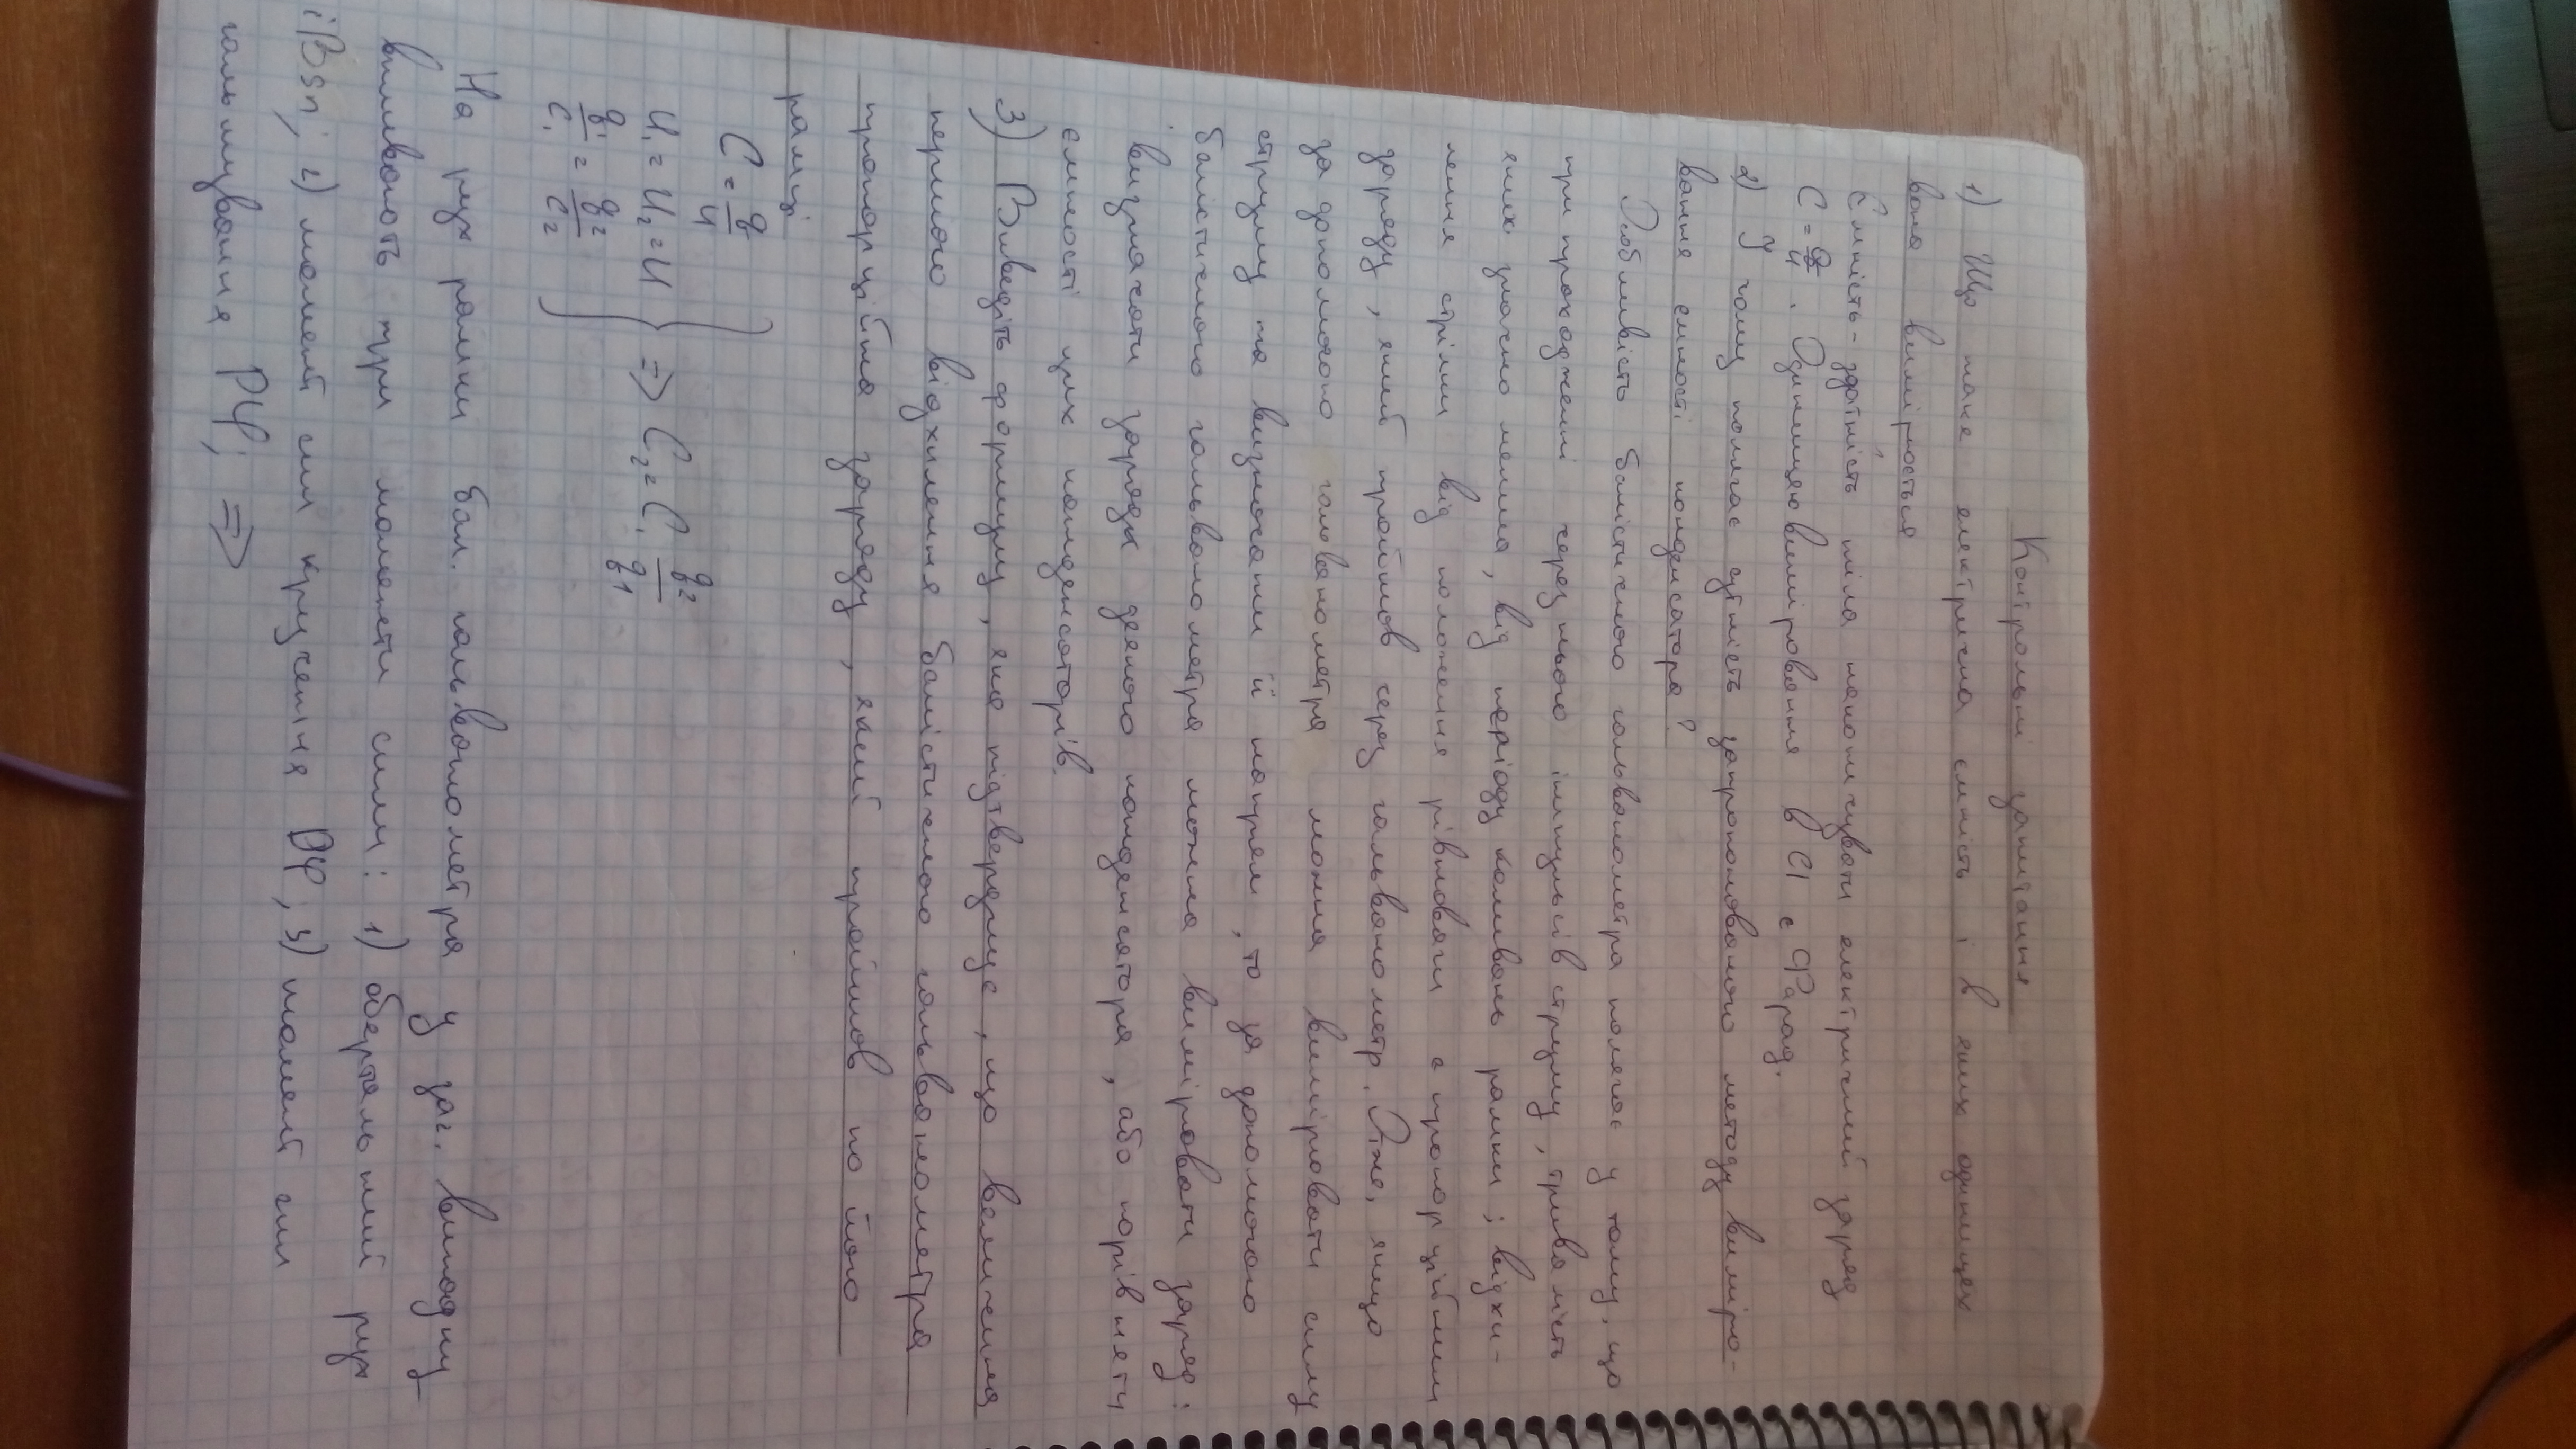 Контрольні запитання
1) Що таке електрична ємність і в яких одиницях
вона вимірюється
Ємність - здатність тіла накопичувати електричний заряд
C = q/U . Одиницею вимірювання в СІ є Фарад.
2) У чому полягає сутність запропонованого методу вимірю-
вання ємності конденсатора?
Особливість балістичного гальванометра полягає у тому, що
при проходженні через нього імпульсів струму, тривалість
яких значно менша, від періоду коливань рамки ; відхи-
лення стрілки від положення рівноваги є пропорційним
заряду, який пройшов через гальванометр. Отже, якщо
за допомогою гальванометра можна вимірювати силу
струму та визначати її напрям, то за допомогою
балістичного гальванометра можна вимірювати заряд:
визначати заряди деякого конденсатора, або порівняти
ємності цих конденсаторів.
3) Виведіть формулу, яка підтверджує, що величина
першого відхилення балістичного гальванометра
пропорційна заряду, який пройшов по його
рамці
C = q/U
U₁ = U₂ = U
q₁/C₁ = q₂/C₂ } => C₂ = C₁ q₂/q1
На рух рамки бал. гальванометра у заг. випадку
впливають три моменти сили: 1) обертальний рух
iBsn; 2) момент сил кручення Dφ; 3) момент сил
гальмування Pφ; =>